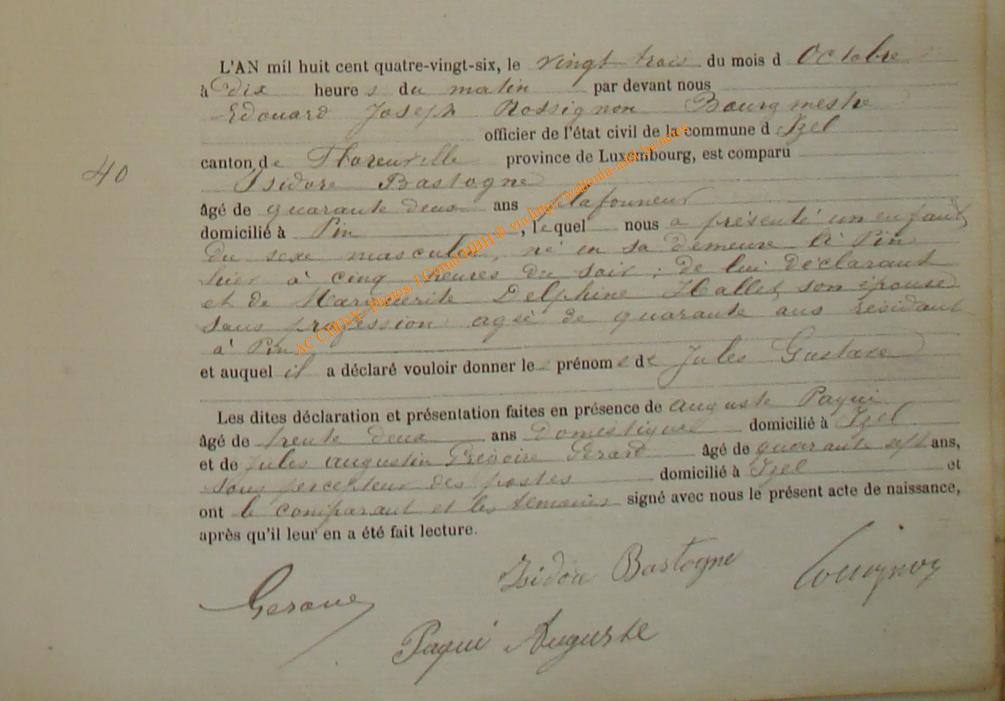 L'AN mil huit cent quatre-vingt-six, le vingt trois du mois d Octobre
à Dix heure s du matin par devant nous
Edouard Joseph Rossignon Bourgmestre
officier de l'état civil de la commune d Izel
canton de Florenville province de Luxembourg, est comparu
40
Isidore Bastogne
âgé de quarante deux ans plafonneur
domicilié à Pin, lequel nous a présenté un enfant
du sexe masculin, né en sa demeure à Pin
hier à cinq heures du soir; de lui Déclarant
et de Marguerite Delphine Hallet, son épouse
sans profession agée de quarante ans résidant
à Pin
et auquel il a déclaré vouloir donner les prénoms de Jules Gustave
Les dites déclaration et présentation faites en présence de Auguste Paqui
âgé de trente deux ans Domestique domicilié à Izel
et de Jules Augustin Grégoire Gerard âgé de quarante sept ans,
sous percepteur des postes domicilié à Izel et
ont le comparant et les témoins signé avec nous le présent acte de naissance,
après qu'il leur en a été fait lecture.
Isidore Bastogne
Paqui Auguste